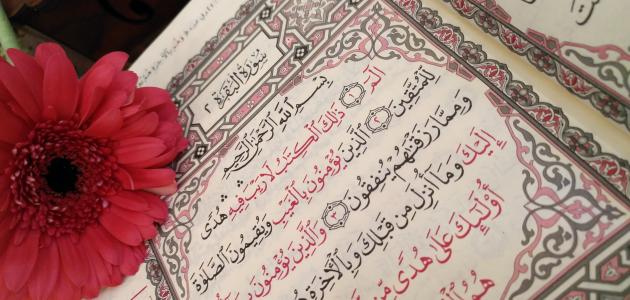 سُورَةُ البَقَرَةِ ٢
بِسْمِ اللَّهِ الرَّحْمَٰنِ الرَّحِيمِ
الٓمٓ ١ ذَٰلِكَ ٱلْكِتَٰبُ لَا رَيْبَ فِيهِ هُدًى
لِّلْمُتَّقِينَ ٢ ٱلَّذِينَ يُؤْمِنُونَ بِٱلْغَيْبِ وَيُقِيمُونَ ٱلصَّلَوٰةَ
وَمِمَّا رَزَقْنَٰهُمْ يُنفِقُونَ ٣ وَٱلَّذِينَ يُؤْمِنُونَ
إِلَيْكَ وَمَآ أُنزِلَ مِن قَبْلِكَ وَبِٱلْآخِرَةِ
أُو۟لَٰٓئِكَ عَلَىٰ هُدًى مِّن
هُمُ